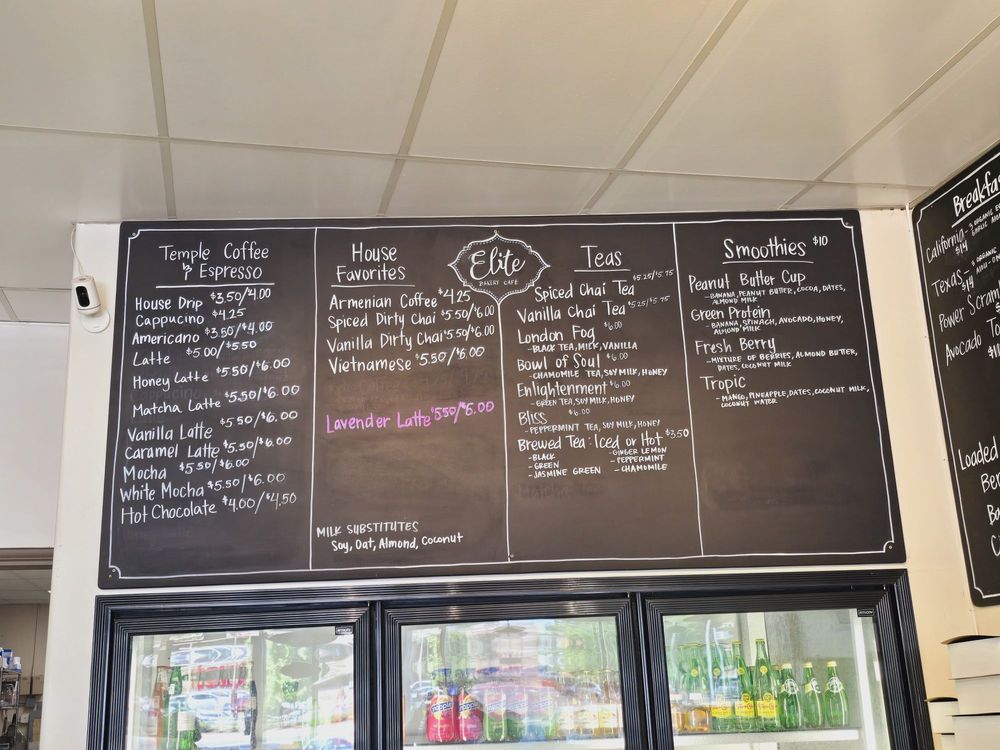 Temple Coffee
& Espresso
House Drip $3.50/4.00
Cappucino $4.25
Americano $3.50/$4.00
Latte $5.00/$5.50
Honey Latte $5.50/$6.00
Matcha Latte $5.50/$6.00
Vanilla Latte $5.50/$6.00
Caramel Latte $5.50/$6.00
Mocha $5.50/$6.00
White Mocha $5.50/$6.00
Hot Chocolate $4.00/$4.50
House
Favorites
Armenian Coffee $4.25
Spiced Dirty Chai $5.50/$6.00
Vanilla Dirty Chai $5.50/$6.00
Vietnamese $5.50/$6.00
Lavender Latte $5.50/$6.00
MILK SUBSTITUTES
Soy, Oat, Almond, Coconut
Elite
BAKERY CAFE
Teas
Spiced Chai Tea $5.25/$5.75
Vanilla Chai Tea $5.25/$5.75
London Fog $6.00
-BLACK TEA, MILK, VANILLA
Bowl of Soul $6.00
-CHAMOMILE TEA, SOY MILK, HONEY
Enlightenment $6.00
-GREEN TEA, SOY MILK, HONEY
Bliss $6.00
-PEPPERMINT TEA, SOY MILK, HONEY
Brewed Tea: Iced or Hot $3.50
-BLACK
-GREEN
-JASMINE GREEN
-GINGER LEMON
-PEPPERMINT
-CHAMOMILE
Smoothies $10
Peanut Butter Cup
-BANANA, PEANUT BUTTER, COCOA, DATES,
ALMOND MILK
Green Protein
-BANANA, SPINACH, AVOCADO, HONEY,
ALMOND MILK
Fresh Berry
-MIXTURE OF BERRIES, ALMOND BUTTER,
DATES, COCONUT MILK
Tropic
-MANGO, PINEAPPLE, DATES, COCONUT MILK,
COCONUT WATER
Breakfas
California-
$14
Texas-
$14
Power Scram
Avocado To
Loaded
Be
Ba